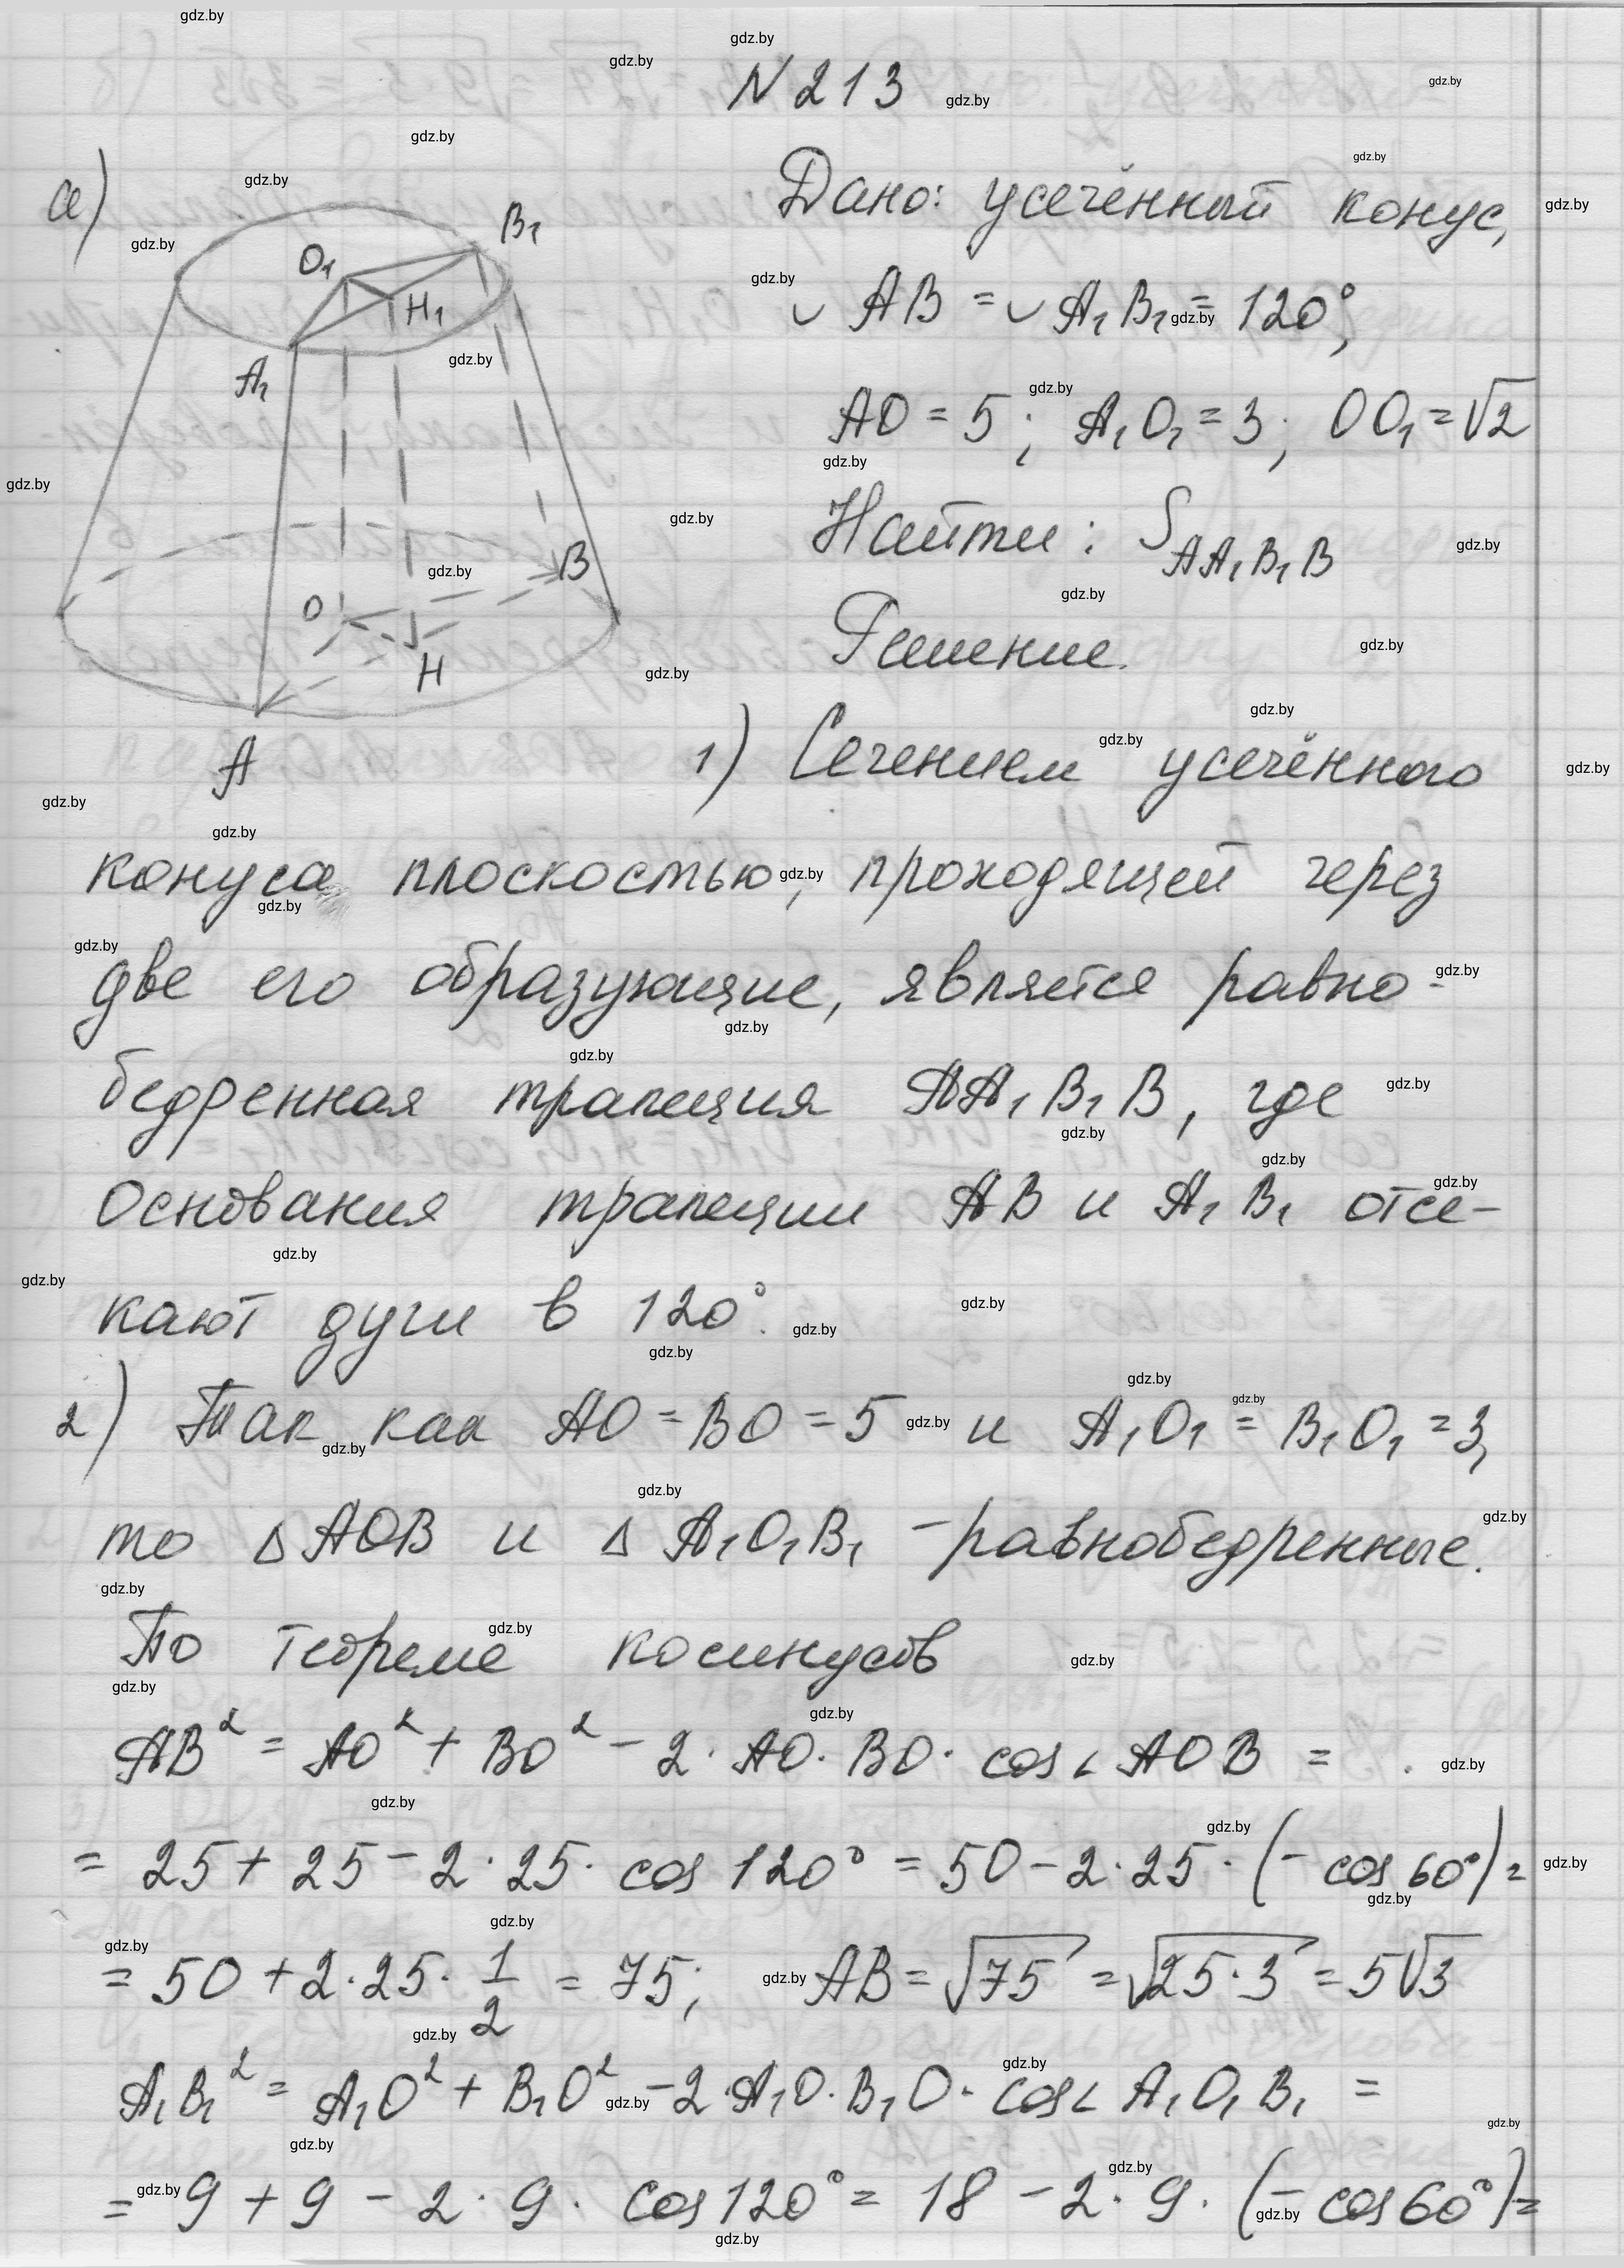 N 213
а)
Дано: усечённый конус,
◡ AB = ◡ A₁B₁ = 120°;
AO = 5; A₁O₁ = 3; OO₁ = √2
Найти: S_AA₁B₁B
Решение.
B₁
O₁
H₁
A₁
B
O
H
A
1) Сечением усечённого
конуса плоскостью, проходящей через
две его образующие, является равно-
бедренная трапеция AA₁B₁B, где
основания трапеции AB и A₁B₁ отсе-
кают дуги в 120°.
2) Так как AO = BO = 5 и A₁O₁ = B₁O₁ = 3,
то △AOB и △A₁O₁B₁ - равнобедренные.
По теореме косинусов
AB² = AO² + BO² - 2·AO·BO·cos∠AOB =
= 25 + 25 - 2·25·cos 120° = 50 - 2·25·(-cos 60°) =
= 50 + 2·25·1/2 = 75; AB = √75 = √25·3 = 5√3
A₁B₁² = A₁O² + B₁O² - 2·A₁O·B₁O·cos∠A₁O₁B₁ =
= 9 + 9 - 2·9·cos 120° = 18 - 2·9·(-cos 60°) =
gdz.by